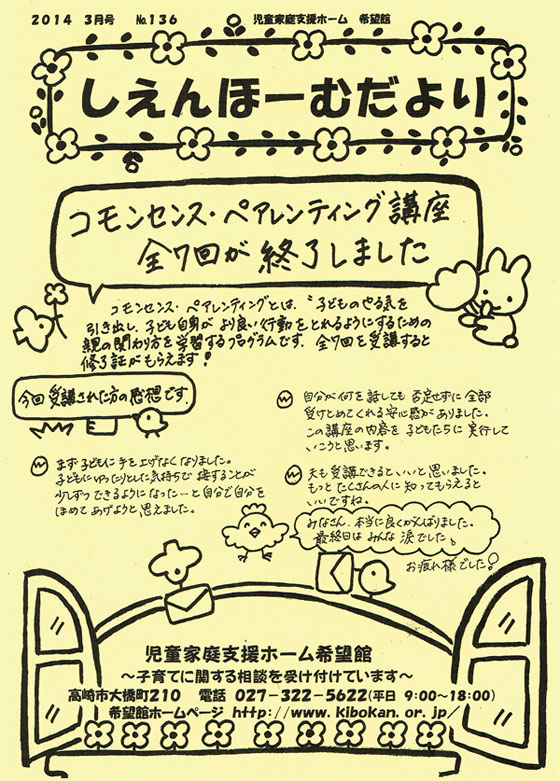 2014 3月号 No.136 児童家庭支援ホーム 希望館
しえんほーむだより
コモンセンス・ペアレンティング講座
全7回が終了しました
コモンセンス・ペアレンティングとは、〝子どものやる気を
引き出し、子ども自身がより良い行動をとれるようにするための
親の関わり方を学習するプログラムです。全7回を受講すると
修了証がもらえます!
今回受講された方の感想です。
まず子どもに手を上げなくなりました。
子どもにゆったりとした気持ちで接することが
少しずつできるようになった…と自分で自分を
ほめてあげようと思えました。
自分が何を話しても否定せずに全部
受けとめてくれる安心感がありました。
この講座の内容を子どもたちに実行して
いこうと思います。
夫も受講できるといいと思いました。
もっとたくさんの人に知ってもらえると
いいですね。
みなさん、本当に良くがんばりました。
最終日はみんな涙でした。
お疲れ様でした!
児童家庭支援ホーム希望館
~子育てに関する相談を受け付けています~
高崎市大橋町210 電話 027-322-5622(平日 9:00~18:00)
希望館ホームページ http://www.kibokan.or.jp/